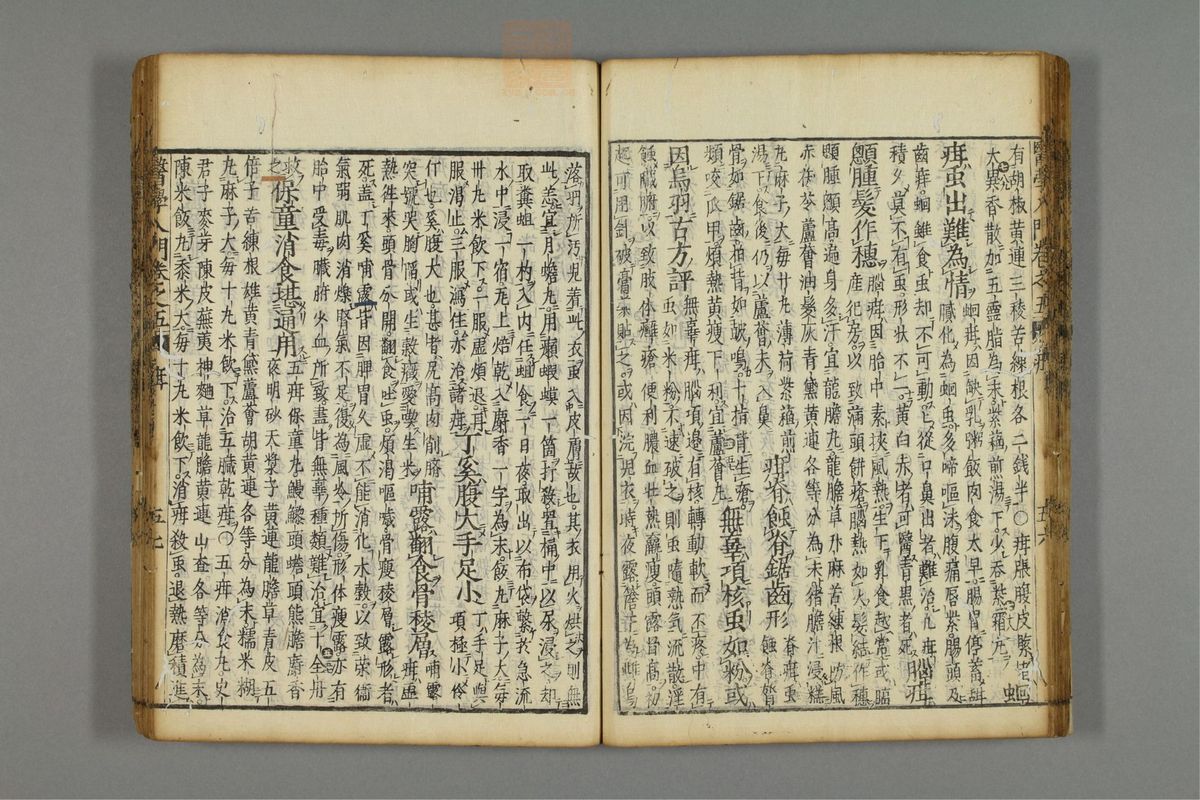 醫學入門卷之五 疳 五六
有胡椒黃連三稜苦練根各二錢半〇疳脹腹皮緊
大異香散加五靈脂為末紫蘓煎湯下少與紫霜丸 蛔
疳虫出難為情 蛔疳因缺乳粥飯肉食太早腸胃停蓄
膩化為蛔虫多啼嘔沫腹痛唇紫腸頭及
齒痒蛔雖食虫却不可動上從口鼻出者難治凡疳
積久莫不有虫形状不一黃白赤者可醫青黑者死 腦疳
顖腫髮作穗 腦疳因胎中素挾風熱生下乳食越常或臨
產犯房以致滿頭餅瘡腦熱如火髮結作穗
顋腫顖高遍身多汗宜龍膽丸龍膽草升麻苦練根防風
赤茯苓蘆薈油髮灰青黛黃連各等分為末猪膽汁浸糕
丸麻子大每廿丸薄荷紫蘓煎
湯下食後仍以蘆薈末入鼻 疳脊蝕脊鋸齒形 脊疳虫
蝕脊膂
骨如鋸齒拍背如鼓鳴十指背生瘡
頻咬爪甲煩熱黃瘦下利宜蘆薈丸 無辜項核虫如粉或
因鳥羽古方評 無辜疳腦項邊有核轉動軟而不疼中有
虫如米粉不速破之則虫隨熱氣流散淫
蝕臟腑以致肢体癰瘡便利膿血壯熱羸瘦頭露骨高
起可用針破膏藥貼之或因浣児衣時夜露簷下為雌鳥
落羽所汚児着此衣虫入皮膚故也其衣用火烘之則無
此恙宜月蟾丸用癩蝦蟆一箇打殺置桶中以尿浸之却
取糞蛆一杓入内任蛆食一日夜取出以布袋繫於急流
水中浸一宿瓦上焙乾入麝香一字為末飯丸麻子大每
卅九米飲下一服虛煩退再
服渴止三服瀉住亦治諸疳 丁奚腹大手足小 丁手足與
項極小伶
仃也奚腹大也甚者尻高肉削臍
突號哭胸陥或生穀癥愛喫生米 哺露翻食骨稜層 哺露
疳虛
熱往來頭骨分開翻食吐虫煩渴嘔噦骨瘦稜層露形者
死蓋丁奚哺露皆因脾胃久虛不能消化水穀以致荣衞
氣弱肌肉消爍腎氣不足復為風冷所傷形体瘦露亦有
胎中受毒臟腑少血所致盡皆無辜種類難治宜十全丹
救之 保童消食堪通用 五疳保童丸鰻鱺頭蟾頭熊膽麝香
夜明砂天漿子黃連龍膽草青皮五
倍子苦練根雄黃青黛蘆薈胡黃連各等分為末糯米糊
丸麻子大每十九米飲下治五臟乾疳〇五疳消食丸史
君子麥芽陳皮蕪荑神麯草龍膽黃連山查各等分為末
陳米飯丸黍米大每丁九米飲下消疳殺虫退熱磨積進
醫學入門卷之五 疳 五七